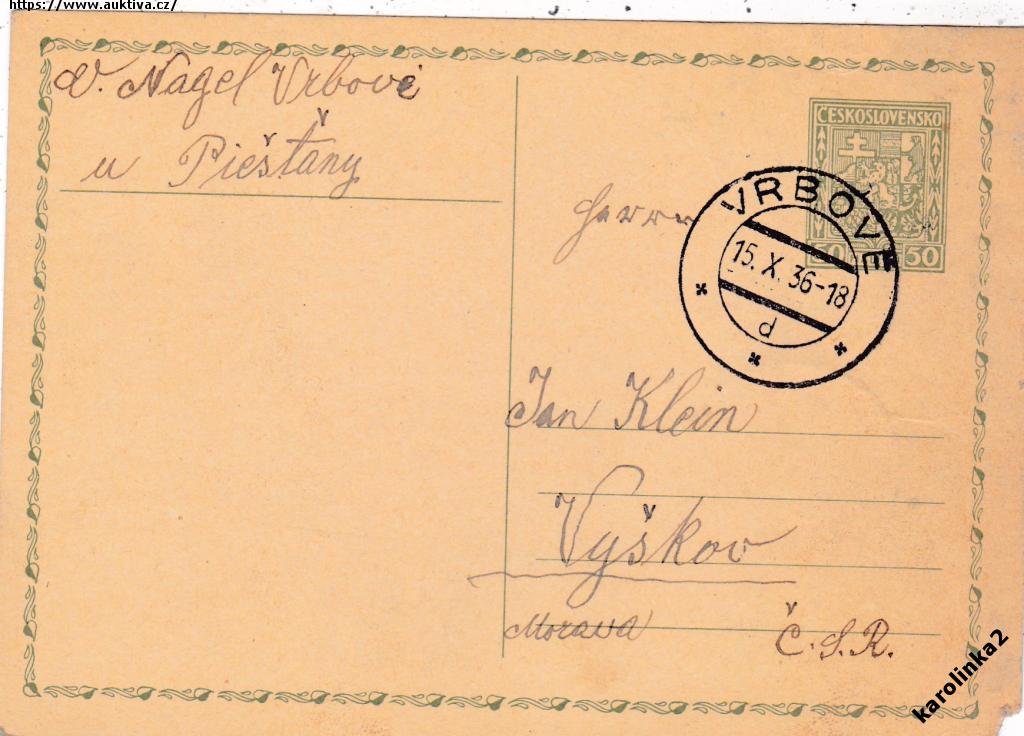 https://www.auktiva.cz/
V. Nagel Vrbové
u Piešťany
ČESKOSLOVENSKO
50 50
Herrn
VRBOVÉ
15. X. 36-18
d
Jan Klein
Vyškov
Morava Č.S.R.
karolinka2